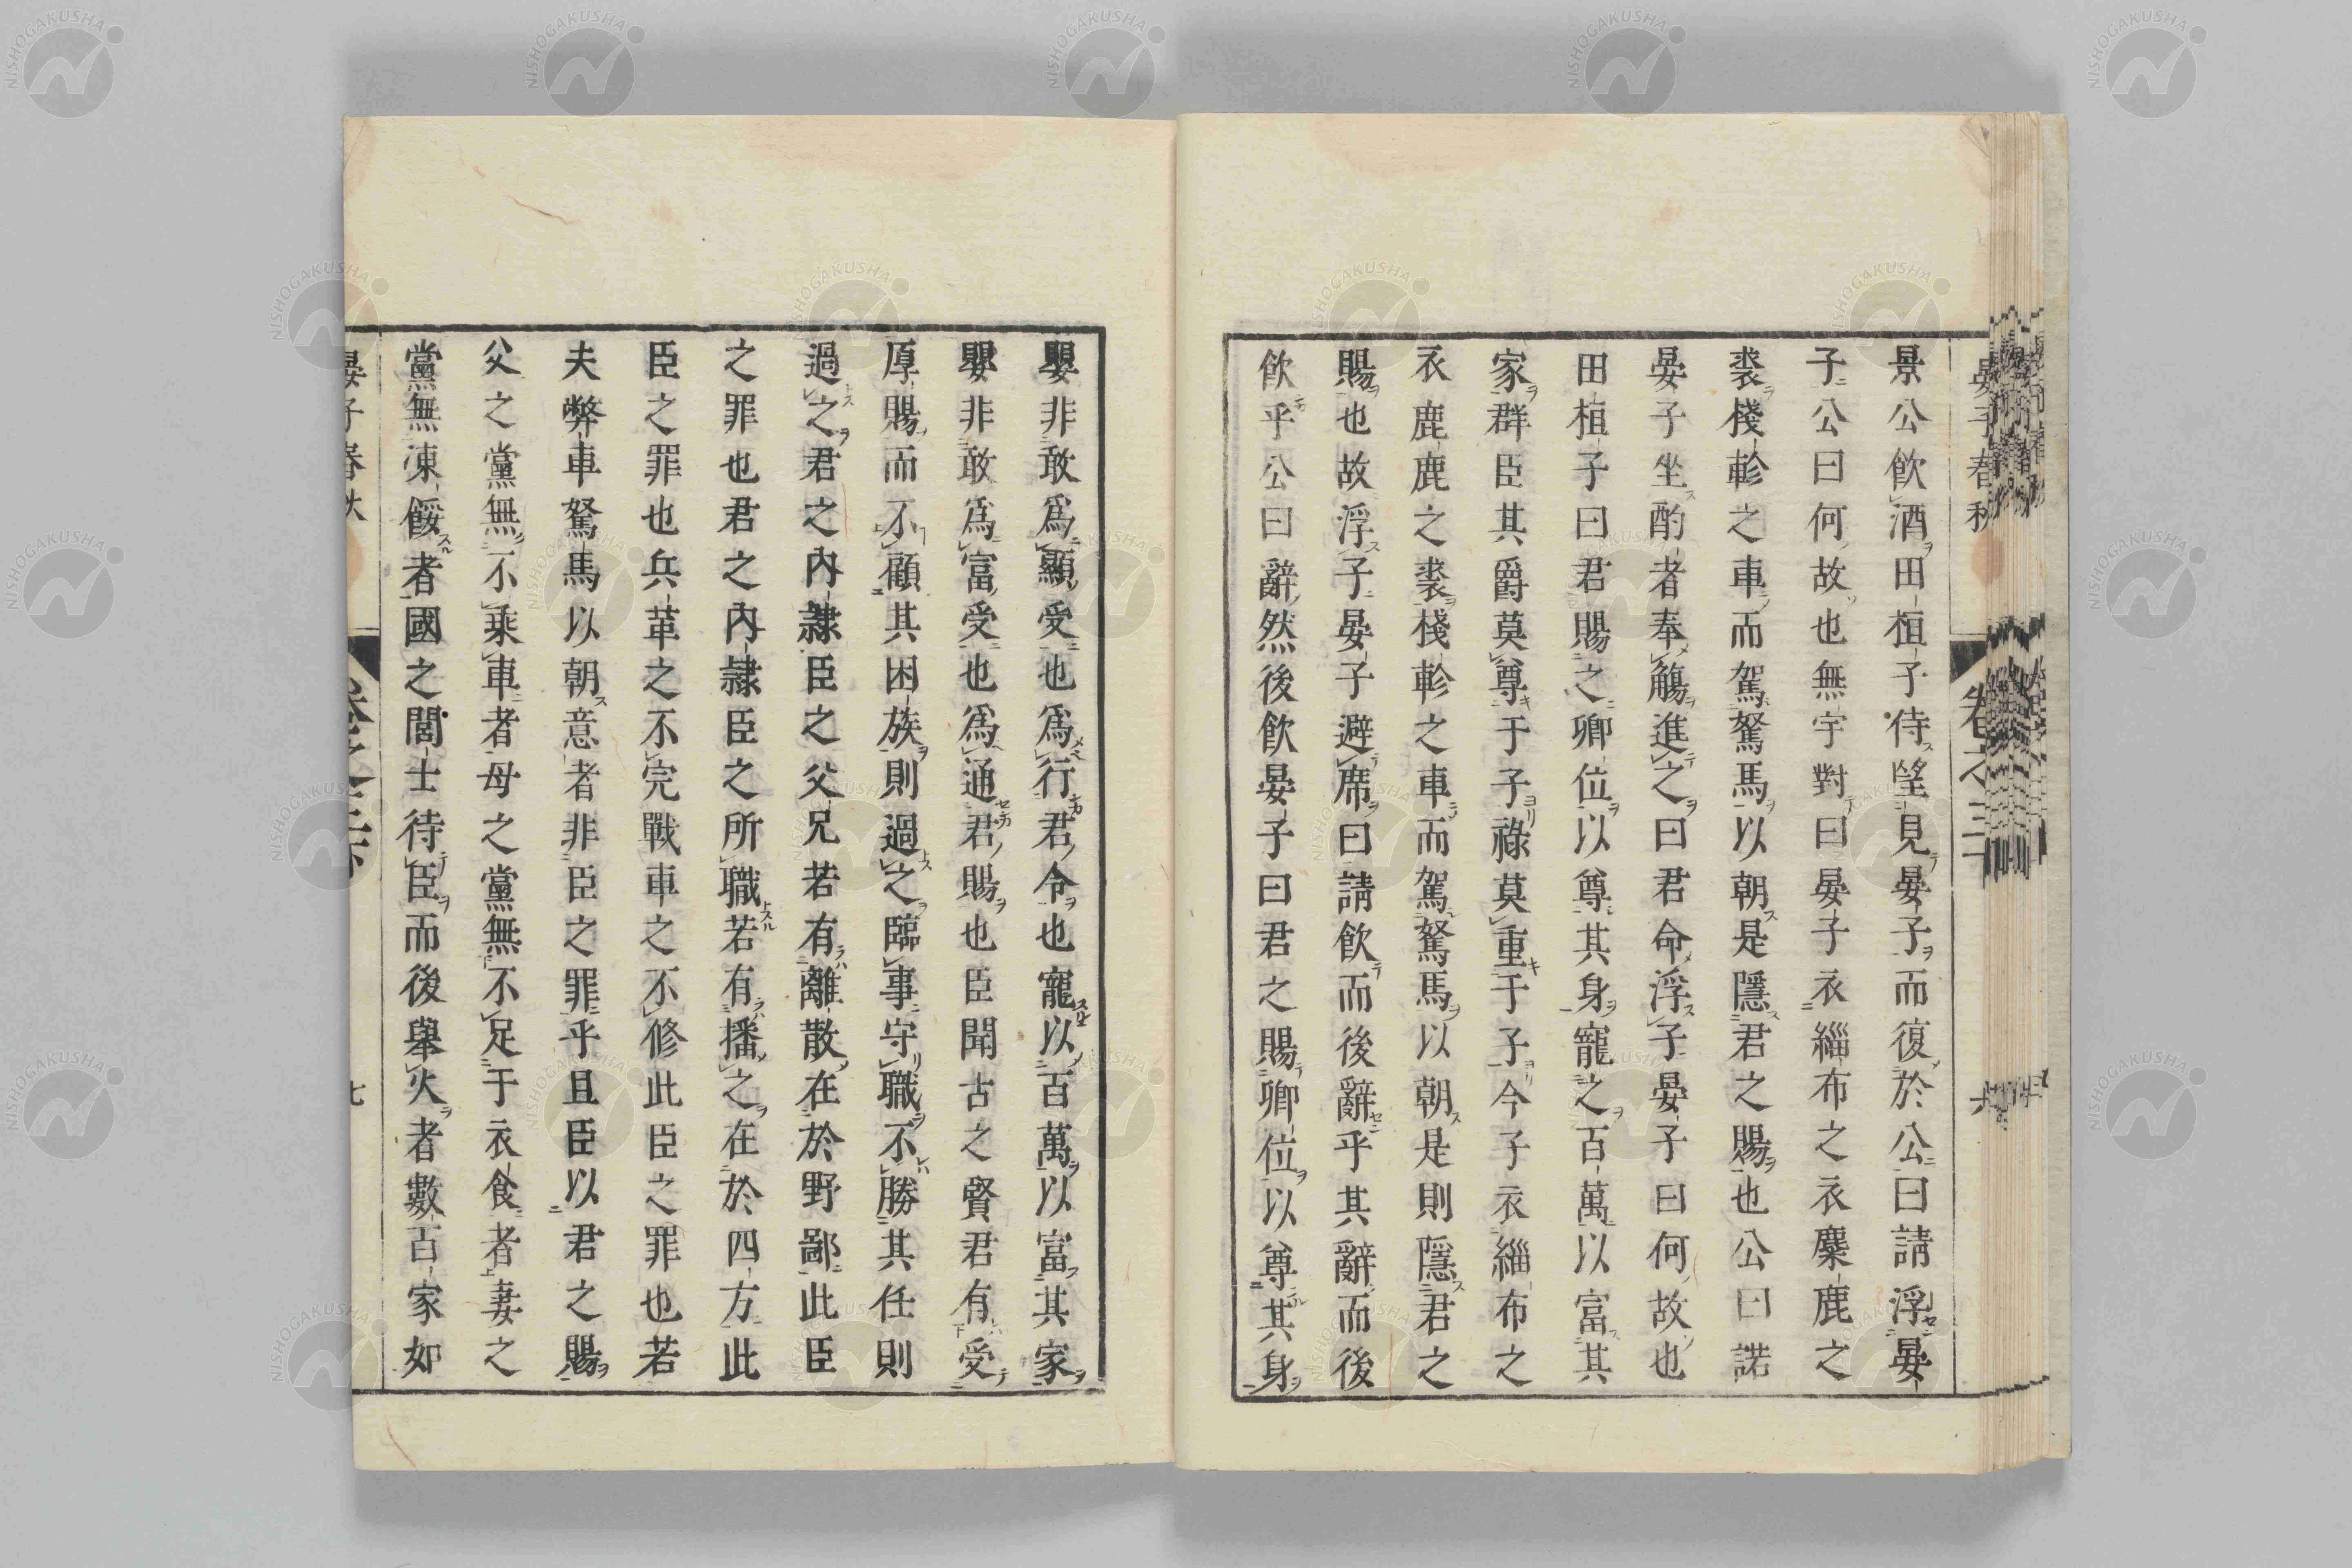 景公飲酒田桓子侍望見晏子而復於公曰請浮晏
子公曰何故也無宇對曰晏子衣緇布之衣麋鹿之
裘棧軫之車而駕駑馬以朝是隱君之賜也公曰諾
晏子坐酌者奉觴進之曰君命浮子晏子曰何故也
田桓子曰君賜之卿位以尊其身寵之百萬以富其
家群臣其爵莫尊于子祿莫重于子今子衣緇布之
衣麋鹿之裘棧軫之車而駕駑馬以朝是則隱君之
賜也故浮子晏子避席曰請飲而後辭乎其辭而後
飲乎公曰辭然後飲晏子曰君之賜卿位以尊其身
嬰非敢爲顯受也爲行君令也寵以百萬以富其家
嬰非敢爲富受也爲通君賜也臣聞古之賢君有受
厚賜而不顧其困族則過之臨事守職不勝其任則
過之君之內隸臣之父兄若有離散在於野鄙此臣
之罪也君之內隸臣之所職若有播之在於四方此
臣之罪也兵革之不完戰車之不修此臣之罪也若
夫弊車駑馬以朝意者非臣之罪乎且臣以君之賜
父之黨無不乘車者母之黨無不足于衣食者妻之
黨無凍餒者國之閭士待臣而後舉火者數百家如
晏子春秋
卷之三
NISHOGAKUSHA